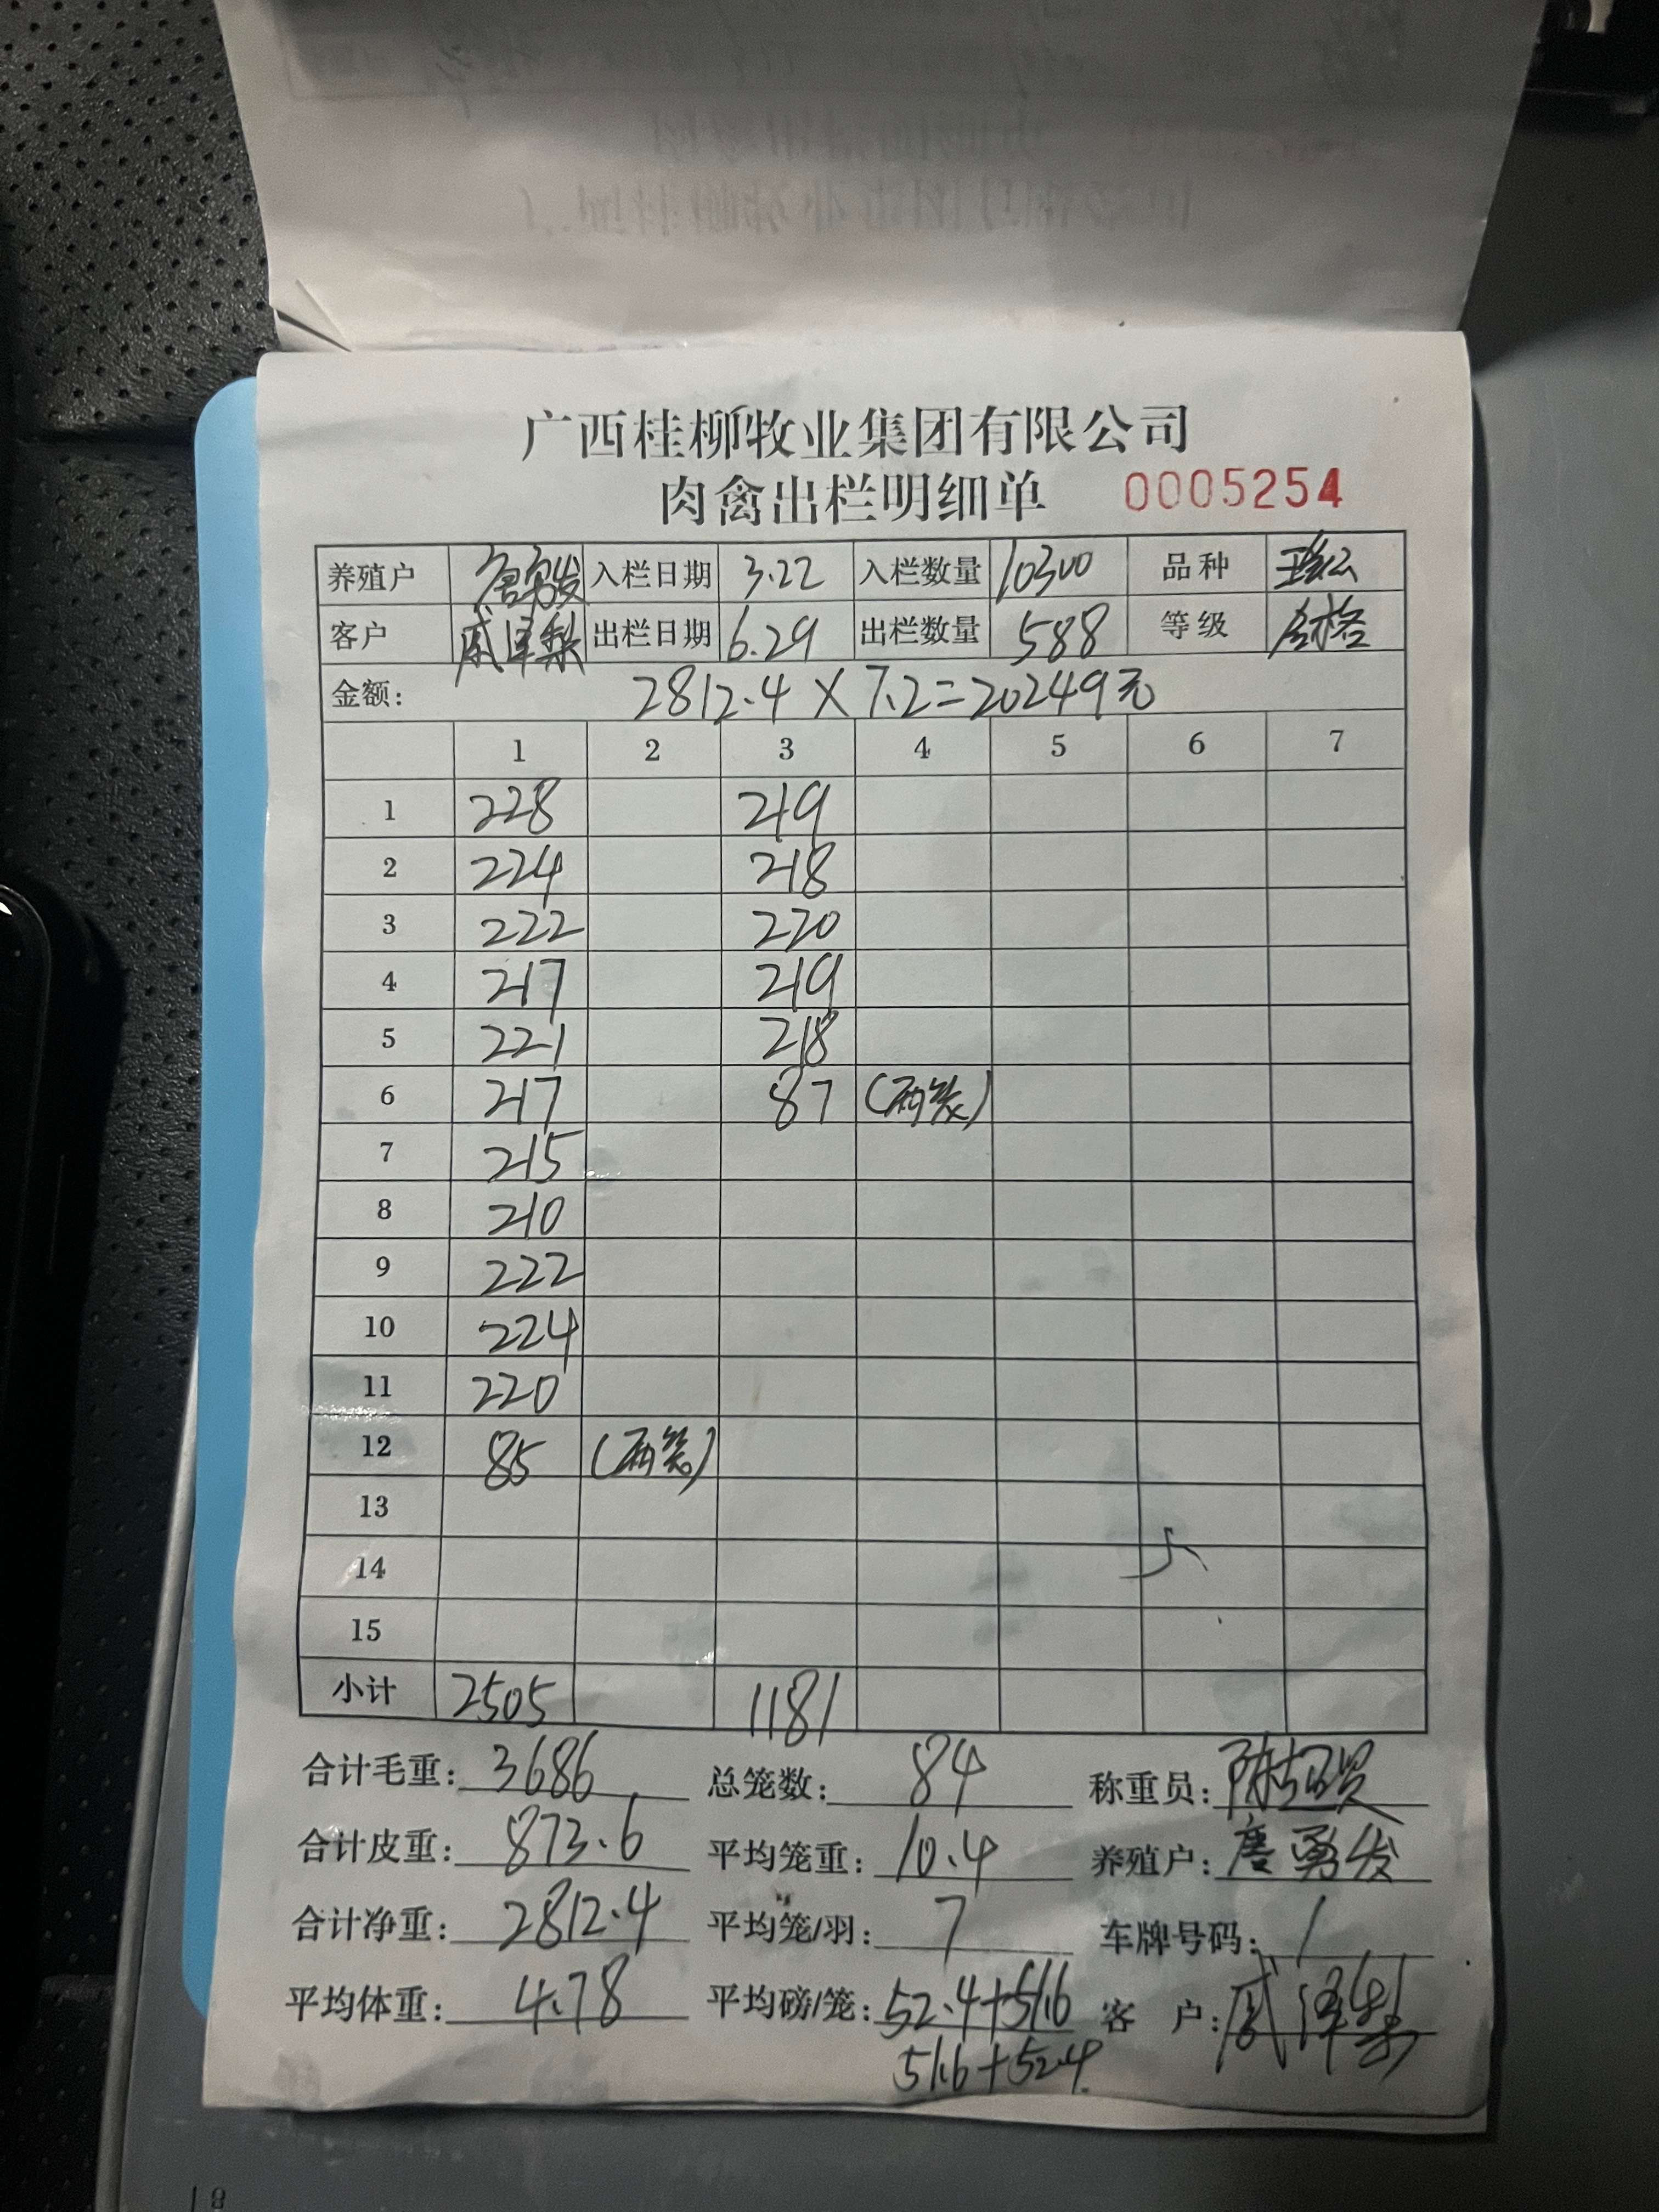 广西桂柳牧业集团有限公司
肉禽出栏明细单 0005254
养殖户 唐勇发 入栏日期 3.22 入栏数量 10300 品种
客户 出栏日期 6.29 出栏数量 588 等级 合格
金额: 2812.4 X 7.2=20249元
1 2 3 4 5 6 7
1 228 219
2 224 218
3 222 220
4 217 219
5 221 218
6 217 87 (两笼)
7 215
8 210
9 222
10 224
11 220
12 85 (两笼)
13
14
15
小计 2505 1181
合计毛重: 3686 总笼数: 84 称重员:
合计皮重: 873.6 平均笼重: 10.4 养殖户: 唐勇发
合计净重: 2812.4 平均笼/羽: 7 车牌号码: /
平均体重: 4.78 平均磅/笼: 52.4+51.6 客 户:
51.6+52.4